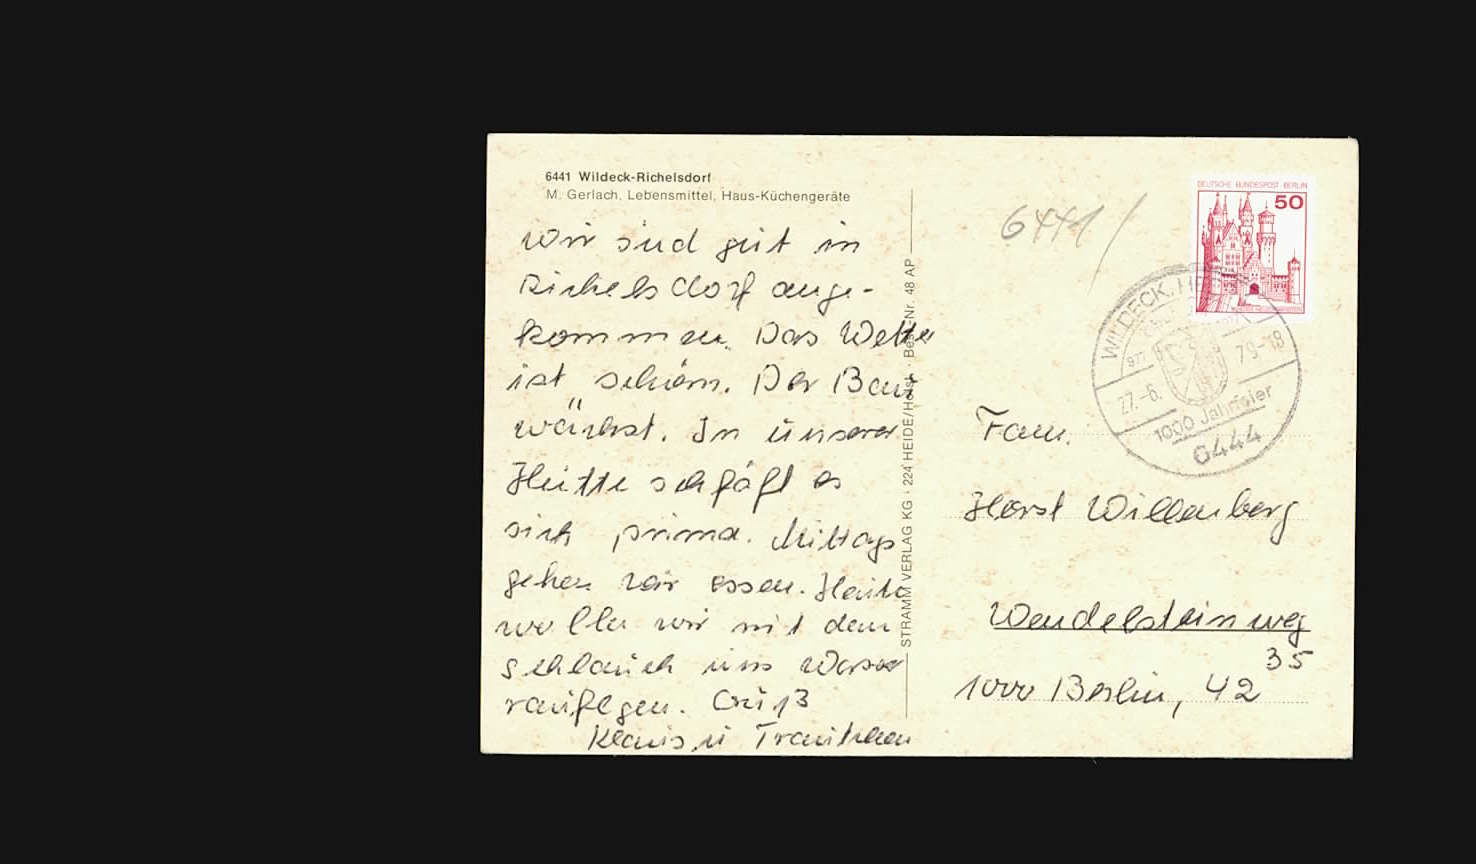 6441 Wildeck-Richelsdorf
M. Gerlach, Lebensmittel, Haus-Küchengeräte
Wir sind gut in
Richelsdorf ange-
kommen. Das Wetter
ist schön. Der Bau
wächst. In unserer
Hütte schläft es
sich prima. Mittags
gehen wir essen. Heute
wollen wir mit dem
Schlauch ins Wasser
rauflegen. Gruß
Klaus u Trautchen
STRAMM VERLAG KG · 224 HEIDE/Holst. · Best.-Nr. 48 AP
6441
DEUTSCHE BUNDESPOST BERLIN
50
WILDECK, HE
977
27.-6.
79-18
1000 Jahrfeier
6444
Fam.
Horst Willenberg
Wendelsteinweg
35
1000 Berlin, 42